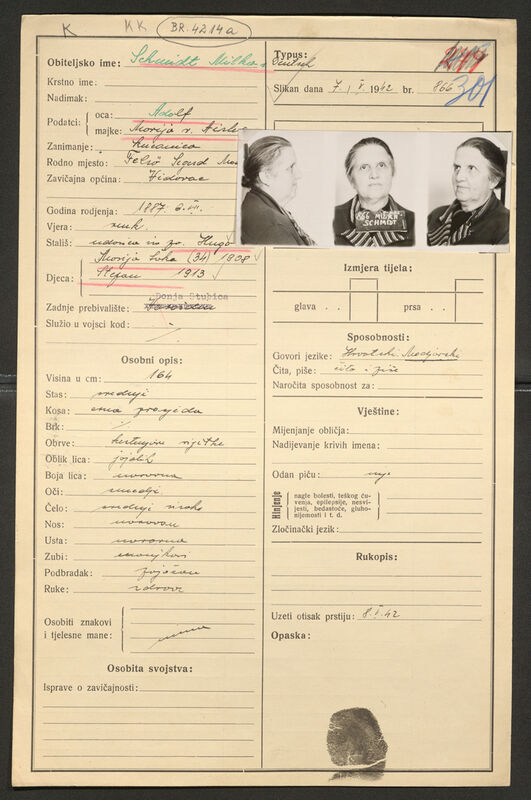 K
KK
BR. 4214a
Obiteljsko ime: Schmidt Milka
Krstno ime:
Nadimak:
Podatci: oca: Adolf
majke: Marija r.
Zanimanje: Kućanica
Rodno mjesto: Felső Segesd
Zavičajna općina: Vidovac
Godina rodjenja: 1887.
Vjera: rmk.
Stališ: udovica iza Hugo
Djeca: Marija Luka (34) 1908
Stefan 1913
Donja Stubica
Zadnje prebivalište:
Služio u vojsci kod:
Osobni opis:
Visina u cm: 164
Stas: srednji
Kosa: crna prosjeda
Brk:
Obrve:
Oblik lica:
Boja lica: normalna
Oči: smedji
Čelo: srednje visoko
Nos: normalan
Usta: normalna
Zubi: manjkavi
Podbradak:
Ruke: zdrave
Osobiti znakovi
i tjelesne mane: nema
Osobita svojstva:
Isprave o zavičajnosti:
Typus:
Slikan dana 7. V. 1942 br. 866
301
866 MILKA
SCHMIDT
Izmjera tijela:
glava . . prsa . .
Sposobnosti:
Govori jezike: Hrvatski, Madjarski
Čita, piše: čita i piše
Naročita sposobnost za:
Vještine:
Mijenjanje obličja:
Nadijevanje krivih imena:
Odan piću: nije
Hinjenje
nagle bolesti, teškog ću-
venja, epilepsije, nesvi-
jesti, bedastoće, gluho-
nijemosti i t. d.
Zločinački jezik:
Rukopis:
Uzeti otisak prstiju: 8. V. 42
Opaska: